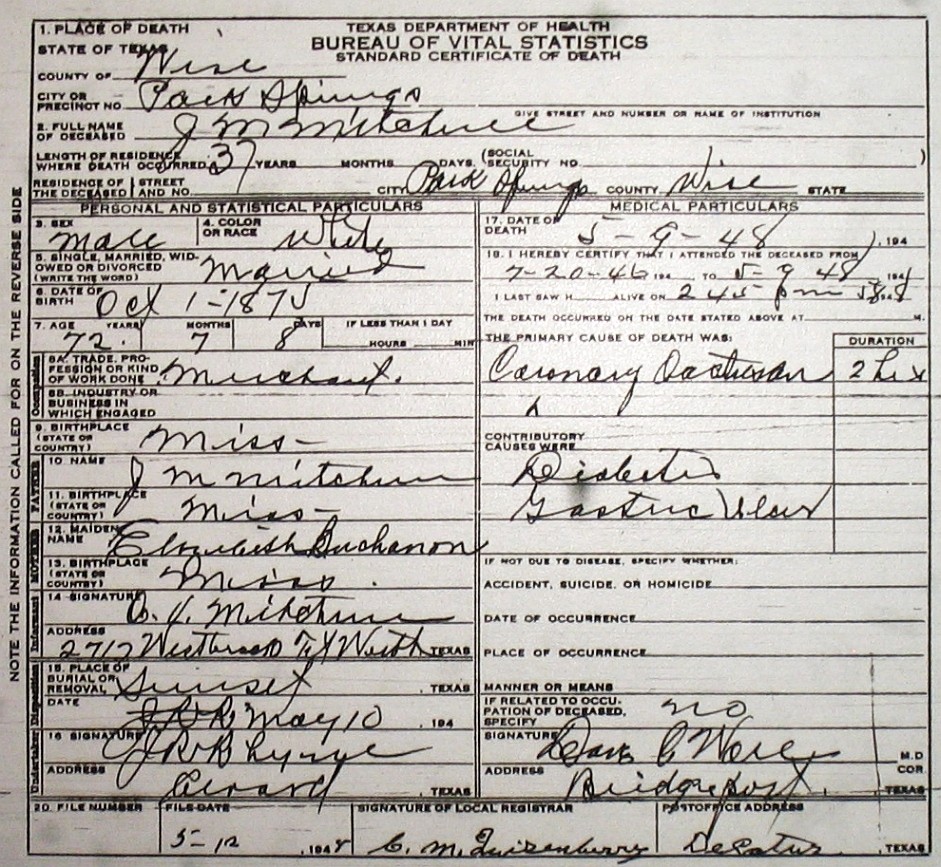 TEXAS DEPARTMENT OF HEALTH
BUREAU OF VITAL STATISTICS
STANDARD CERTIFICATE OF DEATH
1. PLACE OF DEATH
STATE OF TEXAS
COUNTY OF Wise
CITY OR PRECINCT NO. Park Springs
GIVE STREET AND NUMBER OR NAME OF INSTITUTION
2. FULL NAME OF DECEASED J M Mitchum
LENGTH OF RESIDENCE WHERE DEATH OCCURRED 37 YEARS MONTHS DAYS. (SOCIAL SECURITY NO. )
RESIDENCE OF THE DECEASED STREET AND NO. CITY Park Springs COUNTY Wise STATE
PERSONAL AND STATISTICAL PARTICULARS
3. SEX male 4. COLOR OR RACE White
5. SINGLE, MARRIED, WIDOWED OR DIVORCED (WRITE THE WORD) Married
6. DATE OF BIRTH Oct 1-1875
7. AGE YEARS MONTHS DAYS IF LESS THAN 1 DAY
72. 7 8 HOURS MIN
Occupation
8A. TRADE, PROFESSION OR KIND OF WORK DONE Merchant.
8B. INDUSTRY OR BUSINESS IN WHICH ENGAGED
9. BIRTHPLACE (STATE OR COUNTRY) Miss-
FATHER
10 NAME J M Mitchum
11. BIRTHPLACE (STATE OR COUNTRY) Miss-
MOTHER
12. MAIDEN NAME Elizabeth Buchanon
13. BIRTHPLACE (STATE OR COUNTRY) Miss.
Informant
14 SIGNATURE Mitchum
ADDRESS 2717 Ft Worth TEXAS
Disposition
15. PLACE OF BURIAL OR REMOVAL Sunset, TEXAS
DATE May 10, 194
Undertaker
16 SIGNATURE J R Rhyne
ADDRESS TEXAS
MEDICAL PARTICULARS
17. DATE OF DEATH 5-9-48, 194
18. I HEREBY CERTIFY THAT I ATTENDED THE DECEASED FROM
7-20-46 194 TO 5-9 48, 194
I LAST SAW H ALIVE ON 2 45 pm
THE DEATH OCCURRED ON THE DATE STATED ABOVE AT M.
THE PRIMARY CAUSE OF DEATH WAS: DURATION
Coronary 2 hrs
CONTRIBUTORY CAUSES WERE
Diabetes
Gastric Ulcer
IF NOT DUE TO DISEASE, SPECIFY WHETHER:
ACCIDENT, SUICIDE, OR HOMICIDE
DATE OF OCCURRENCE
PLACE OF OCCURRENCE
MANNER OR MEANS
IF RELATED TO OCCUPATION OF DECEASED, SPECIFY no
SIGNATURE M.D
ADDRESS Bridgeport. COR. TEXAS
20. FILE NUMBER FILE DATE SIGNATURE OF LOCAL REGISTRAR POSTOFFICE ADDRESS
5-12, 1948 C. M. Quisenberry Decatur, TEXAS
NOTE THE INFORMATION CALLED FOR ON THE REVERSE SIDE